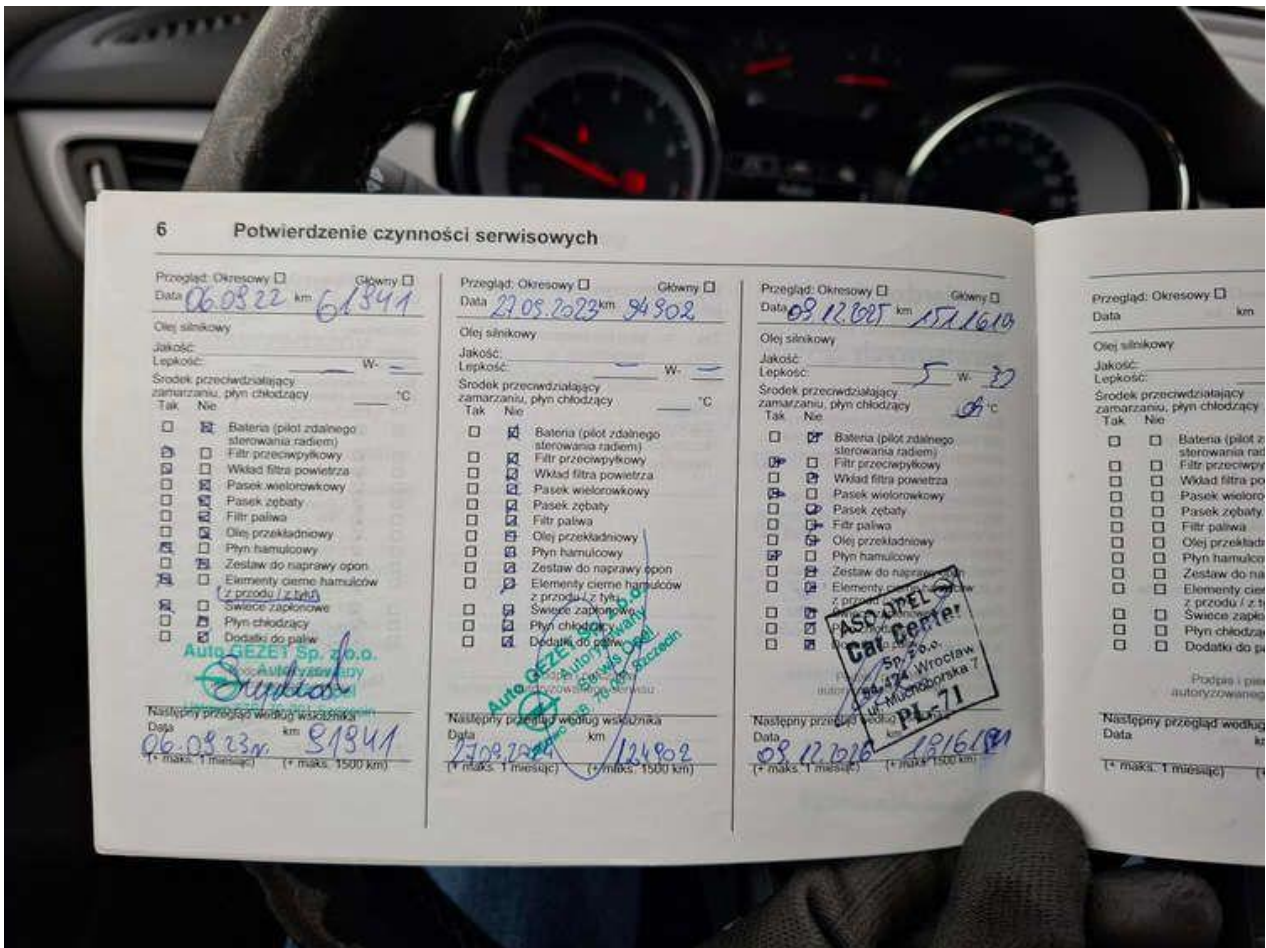 6 Potwierdzenie czynności serwisowych
Przegląd: Okresowy Główny
Data 06.09.22 km 61941
Olej silnikowy
Jakość:
Lepkość: — W- —
Środek przeciwdziałający
zamarzaniu, płyn chłodzący °C
Tak Nie
Bateria (pilot zdalnego
sterowania radiem)
Filtr przeciwpyłkowy
Wkład filtra powietrza
Pasek wielorowkowy
Pasek zębaty
Filtr paliwa
Olej przekładniowy
Płyn hamulcowy
Zestaw do naprawy opon
Elementy cierne hamulców
( z przodu / z tyłu)
Świece zapłonowe
Płyn chłodzący
Dodatki do paliw
Auto GEZET Sp. z o.o.
Autoryzowany
Następny przegląd według wskaźnika
Data 06.09.23r. km 91941
(+ maks. 1 miesiąc) (+ maks. 1500 km)
Przegląd: Okresowy Główny
Data 27.09.2023 km 94902
Olej silnikowy
Jakość:
Lepkość: — W- —
Środek przeciwdziałający
zamarzaniu, płyn chłodzący °C
Tak Nie
Bateria (pilot zdalnego
sterowania radiem)
Filtr przeciwpyłkowy
Wkład filtra powietrza
Pasek wielorowkowy
Pasek zębaty
Filtr paliwa
Olej przekładniowy
Płyn hamulcowy
Zestaw do naprawy opon
Elementy cierne hamulców
z przodu / z tyłu
Świece zapłonowe
Płyn chłodzący
Dodatki do paliw
Auto GEZET Sp. z o.o.
Autoryzowany
Serwis Opel
Szczecin
Następny przegląd według wskaźnika
Data 27.09.2024 km 124902
(+ maks. 1 miesiąc) (+ maks. 1500 km)
Przegląd: Okresowy Główny
Data 09.12.2025 km
Olej silnikowy
Jakość:
Lepkość: 5 W- 30
Środek przeciwdziałający
zamarzaniu, płyn chłodzący °C
Tak Nie
Bateria (pilot zdalnego
sterowania radiem)
Filtr przeciwpyłkowy
Wkład filtra powietrza
Pasek wielorowkowy
Pasek zębaty
Filtr paliwa
Olej przekładniowy
Płyn hamulcowy
Zestaw do naprawy
Elementy
z przodu
ASO OPEL
Car Center
Sp. z o.o.
54-424 Wrocław
ul. Muchoborska 7
PL-71
Następny przegląd według
Data 09.12.2026 km
(+ maks. 1 miesiąc) (+ maks. 1500 km)
Przegląd: Okresowy
Data km
Olej silnikowy
Jakość:
Lepkość:
Środek przeciwdziałający
zamarzaniu, płyn chłodzący
Tak Nie
Bateria (pilot z
sterowania rad
Filtr przeciwpy
Wkład filtra po
Pasek wieloro
Pasek zębaty
Filtr paliwa
Olej przekładn
Płyn hamulco
Zestaw do na
Elementy cier
z przodu / z t
Świece zapło
Płyn chłodzą
Dodatki do pa
Podpis i pie
autoryzowaneg
Następny przegląd według
Data
(+ maks. 1 miesiąc)